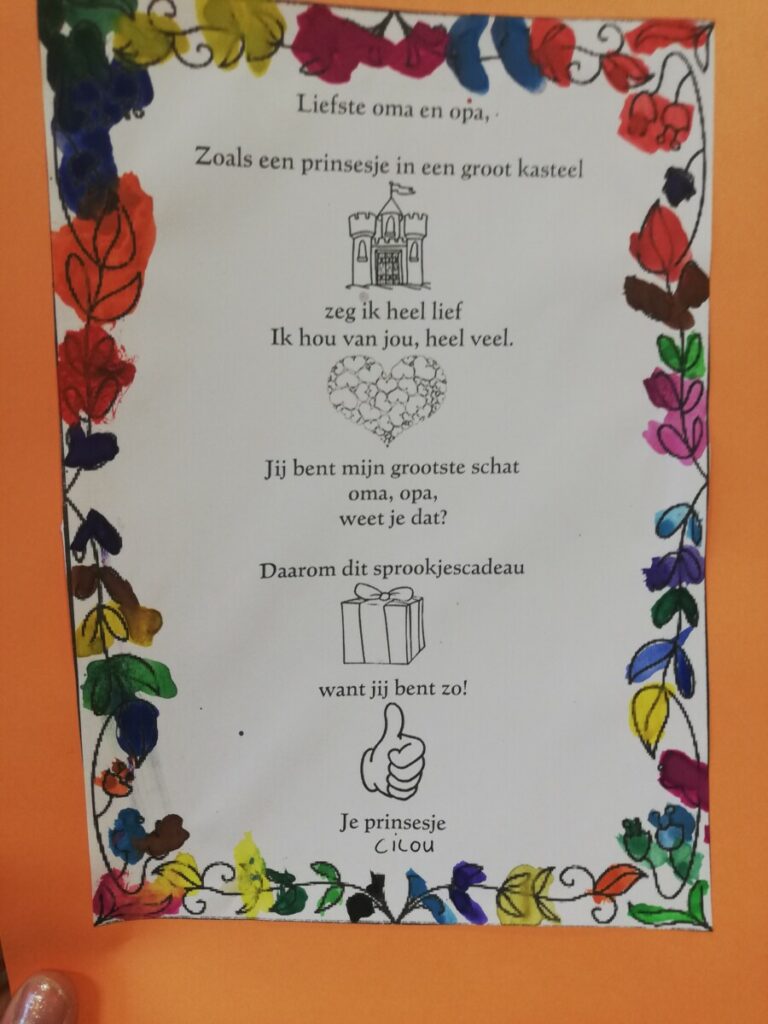 Liefste oma en opa,
Zoals een prinsesje in een groot kasteel
zeg ik heel lief
Ik hou van jou, heel veel.
Jij bent mijn grootste schat
oma, opa,
weet je dat?
Daarom dit sprookjescadeau
want jij bent zo!
Je prinsesje
Cilou